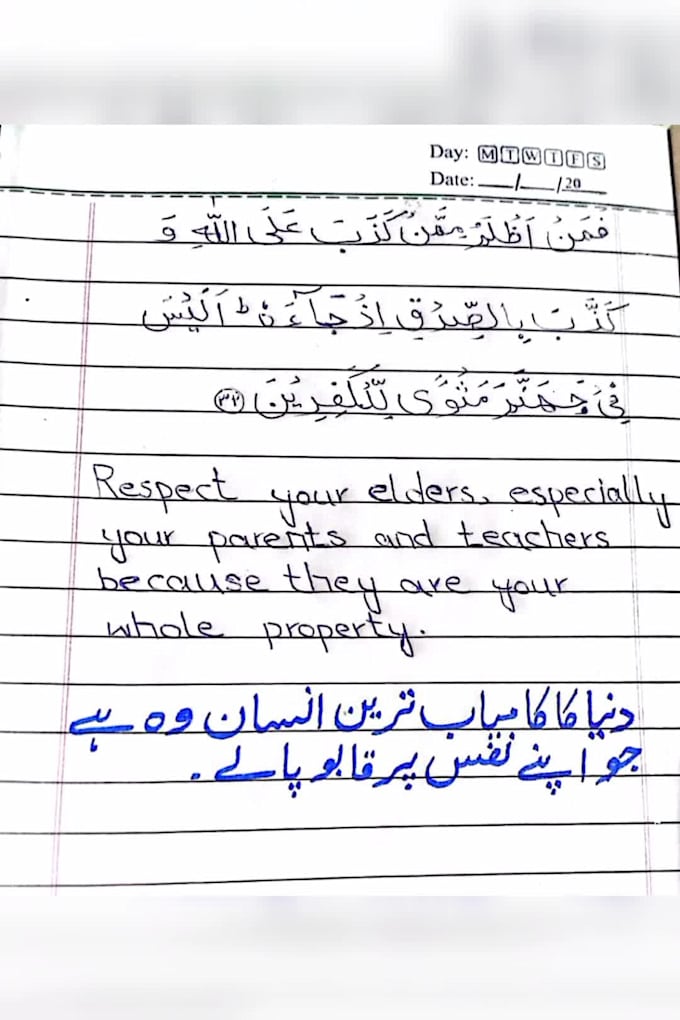 Day: M T W T F S
Date: ___/___/20___
فَمَنْ اَظْلَمُ مِمَّنْ كَذَبَ عَلَى اللّٰهِ وَ
كَذَّبَ بِالصِّدْقِ اِذْ جَآءَهٗ ؕ اَلَيْسَ
فِیْ جَهَنَّمَ مَثْوًى لِّلْكٰفِرِيْنَ ﴿۳۲﴾
Respect your elders, especially
your parents and teachers
because they are your
whole property.
دنیا کا کامیاب ترین انسان وہ ہے
جو اپنے نفس پر قابو پالے ۔